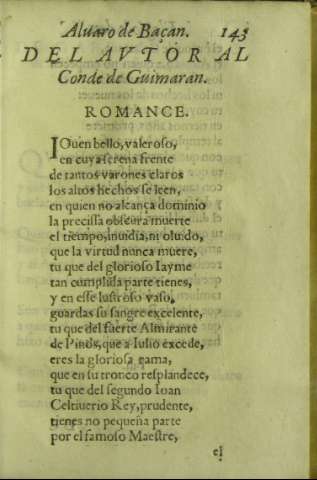 Aluaro de Baçan. 143
DEL AVTOR AL
Conde de Guimaran.
ROMANCE.
IOuen bello, valeroso,
en cuya serena frente
de tantos varones claros
los altos hechos se leen,
en quien no alcança dominio
la precissa obscura muerte
el tiempo, inuidia, ni oluido,
que la virtud nunca muere,
tu que del glorioso Iayme
tan cumplida parte tienes,
y en esse lustroso vaso,
guardas su sangre excelente,
tu que del fuerte Almirante
de Pinòs, que a Iulio excede,
eres la gloriosa rama,
que en su tronco resplandece,
tu que del segundo Ioan
Celtiuerio Rey, prudente,
tienes no pequeña parte
por el famoso Maestre,
el